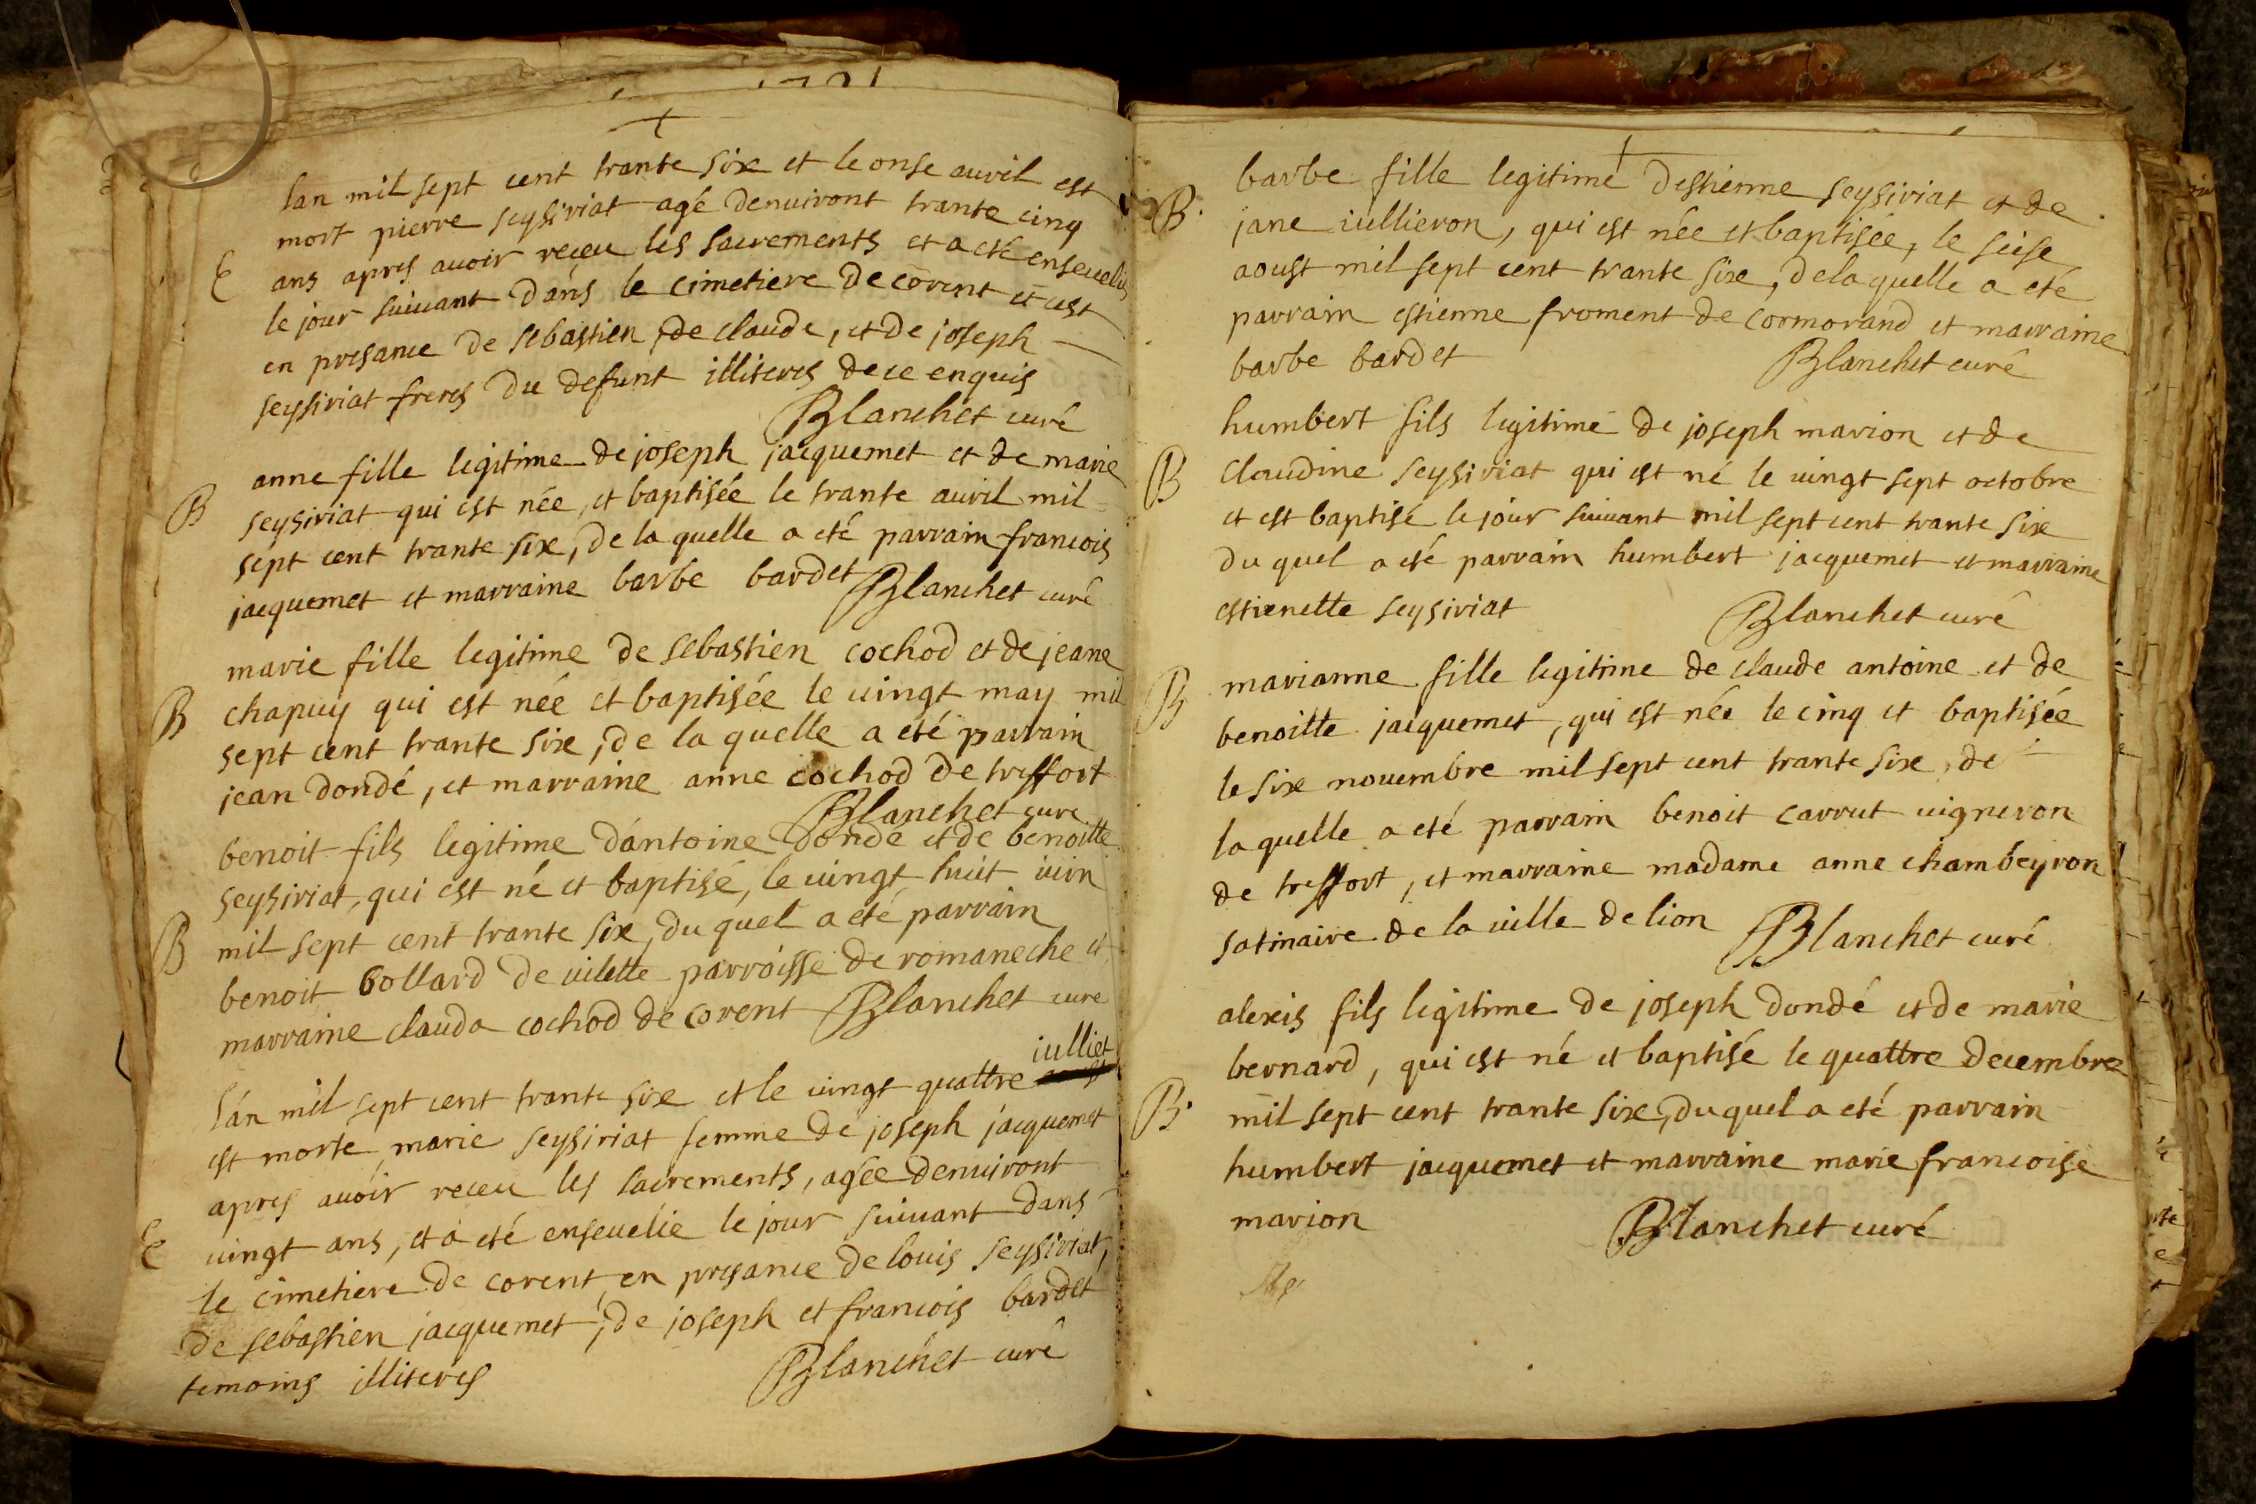 lan mil sept cent trante six et le onse auril est
mort pierre seysiriat agé denuiront trante cinq
E ans apres auoir reçeu les sacrements et a eté enseuelis
le jour suiuant dans le cimetiere de corent et cest
en presance de sebastien, de claude, et de joseph
seysiriat freres du defunt illiteres de ce enquis
Blanchet curé
anne fille legitime de joseph jacquemet et de marie
B seysiriat qui est née, et baptisée le trante auril mil
sept cent trante six, de la quelle a eté parrain francois
jacquemet et marraine barbe bardet Blanchet curé
marie fille legitime de sebastien cochod et de jeane
B chapuy qui est née et baptisée le uingt may mil
sept cent trante six, de la quelle a eté parrain
jean dondé, et marraine anne cochod de treffort
Blanchet curé
benoit fils legitime dántoine dondé et de benoitte
seysiriat, qui est né et baptisé, le uingt huit iuin
B mil sept cent trante six, du quel a eté parrain
benoit bollard de uilette parroisse de romaneche et
marraine clauda cochod de corent Blanchet curé
iulliet
lán mil sept cent trante six et le uingt quattre
est morte marie seysiriat femme de joseph jacquemet
apres auoir receu les sacrements, agée denuiront
E uingt ans, et a eté enseuelie le jour suiuant dans
le cimetiere de corent, en presance de louis seysiriat,
de sebastien jacquemet, de joseph et francois bardet
temoins illiteres Blanchet curé
barbe fille legitime destienne seysiriat et de
B. jane iullieron, qui est née et baptisée, le seise
aoust mil sept cent trante six, de la quelle a eté
parrain estienne froment de cormorand et marraine
barbe bardet Blanchet curé
humbert fils legitime de joseph marion et de
B claudine seysiriat qui est né le uingt sept octobre
et est baptisé le jour suiuant mil sept cent trante six
du quel a eté parrain humbert jacquemet et marraine
estienette seysiriat Blanchet curé
B marianne fille legitime de claude antoine et de
benoitte jacquemet, qui est née le cinq et baptisée
le six nouembre mil sept cent trante six, de
la quelle a eté parrain benoit carrut uigneron
de treffort, et marraine madame anne chambeyron
satinaire de la uille de lion Blanchet curé
alexis fils legitime de joseph dondé et de marie
bernard, qui est né et baptisé le quattre decembre
B. mil sept cent trante six, du quel a eté parrain
humbert jacquemet et marraine marie francoise
marion Blanchet curé